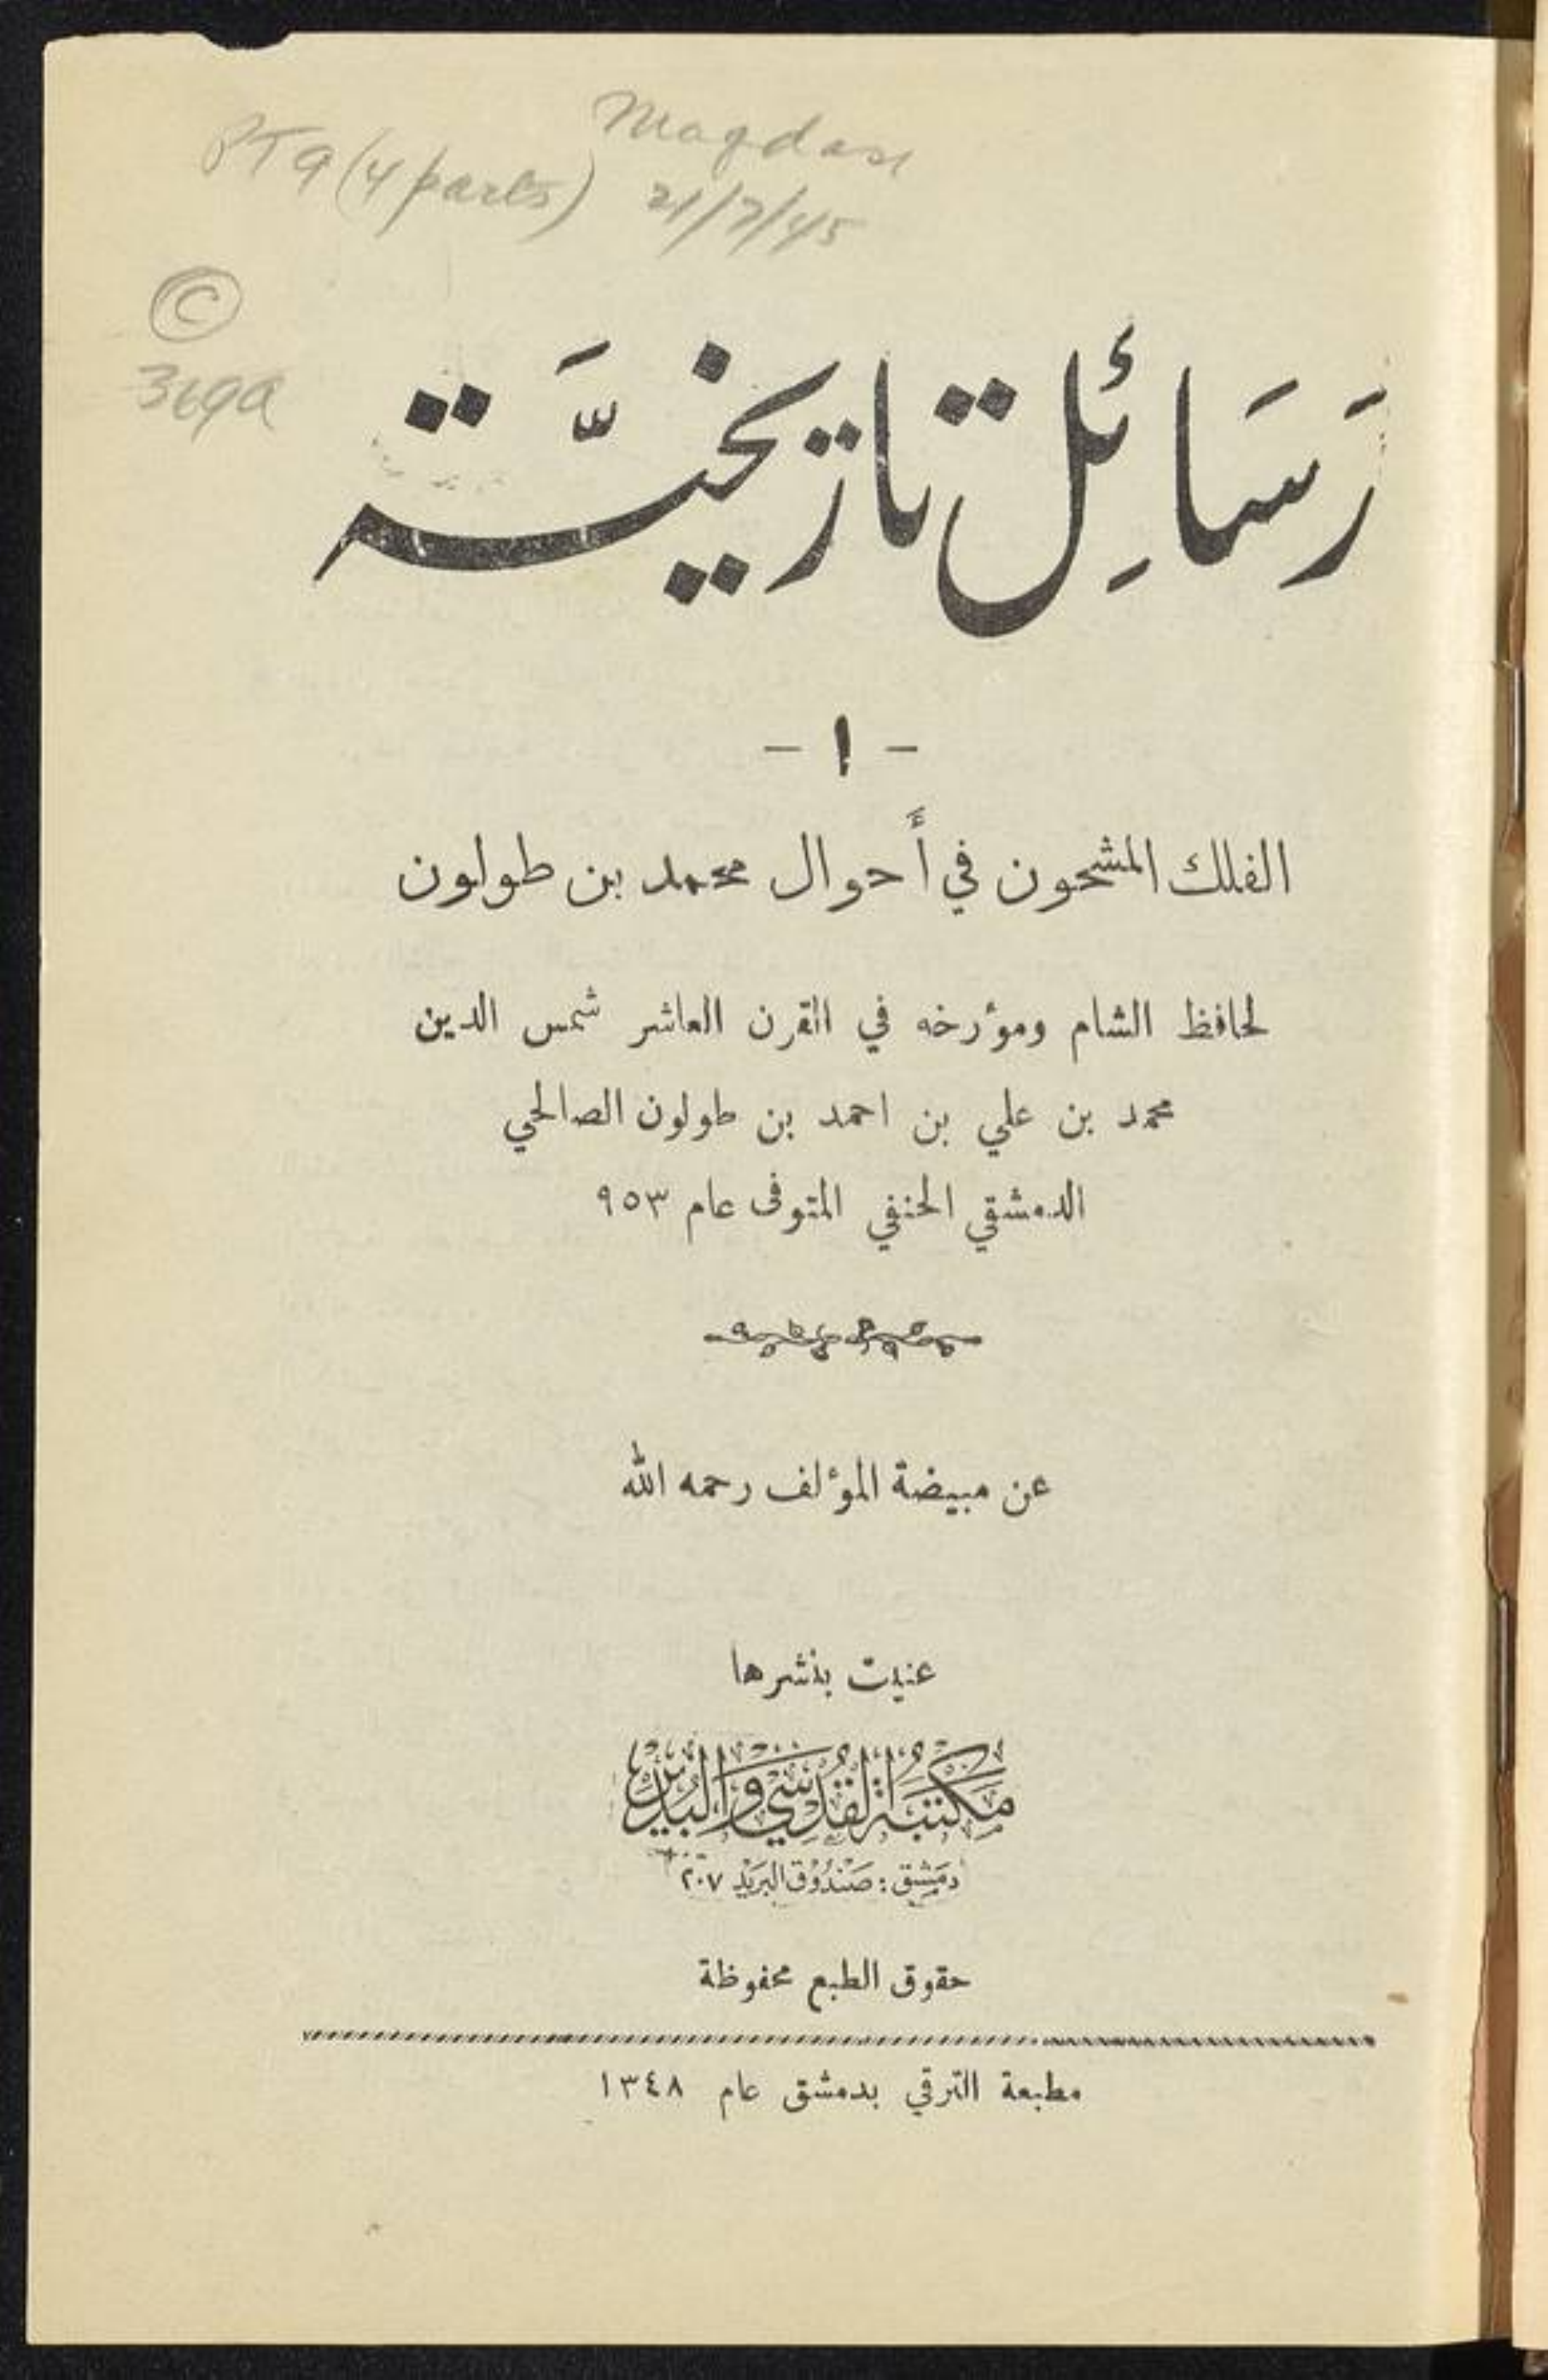 Magdasi
PT9 (4 parts) 21/7/45
©
369a
رَسَائِل تاريخيَّة
- ١ -
الفلك المشحون في أَحوال محمد بن طولون
لحافظ الشام ومؤرخه في القرن العاشر شمس الدين
محمد بن علي بن احمد بن طولون الصالحي
الدمشقي الحنفي المتوفى عام ٩٥٣
عن مبيضة المؤلف رحمه الله
عنيت بنشرها
مَكتَبَة القُدسِي وَالبُدَير
دمَشِق : صَندُوق البَريْد ٢٠٧
حقوق الطبع محفوظة
مطبعة الترقي بدمشق عام ١٣٤٨